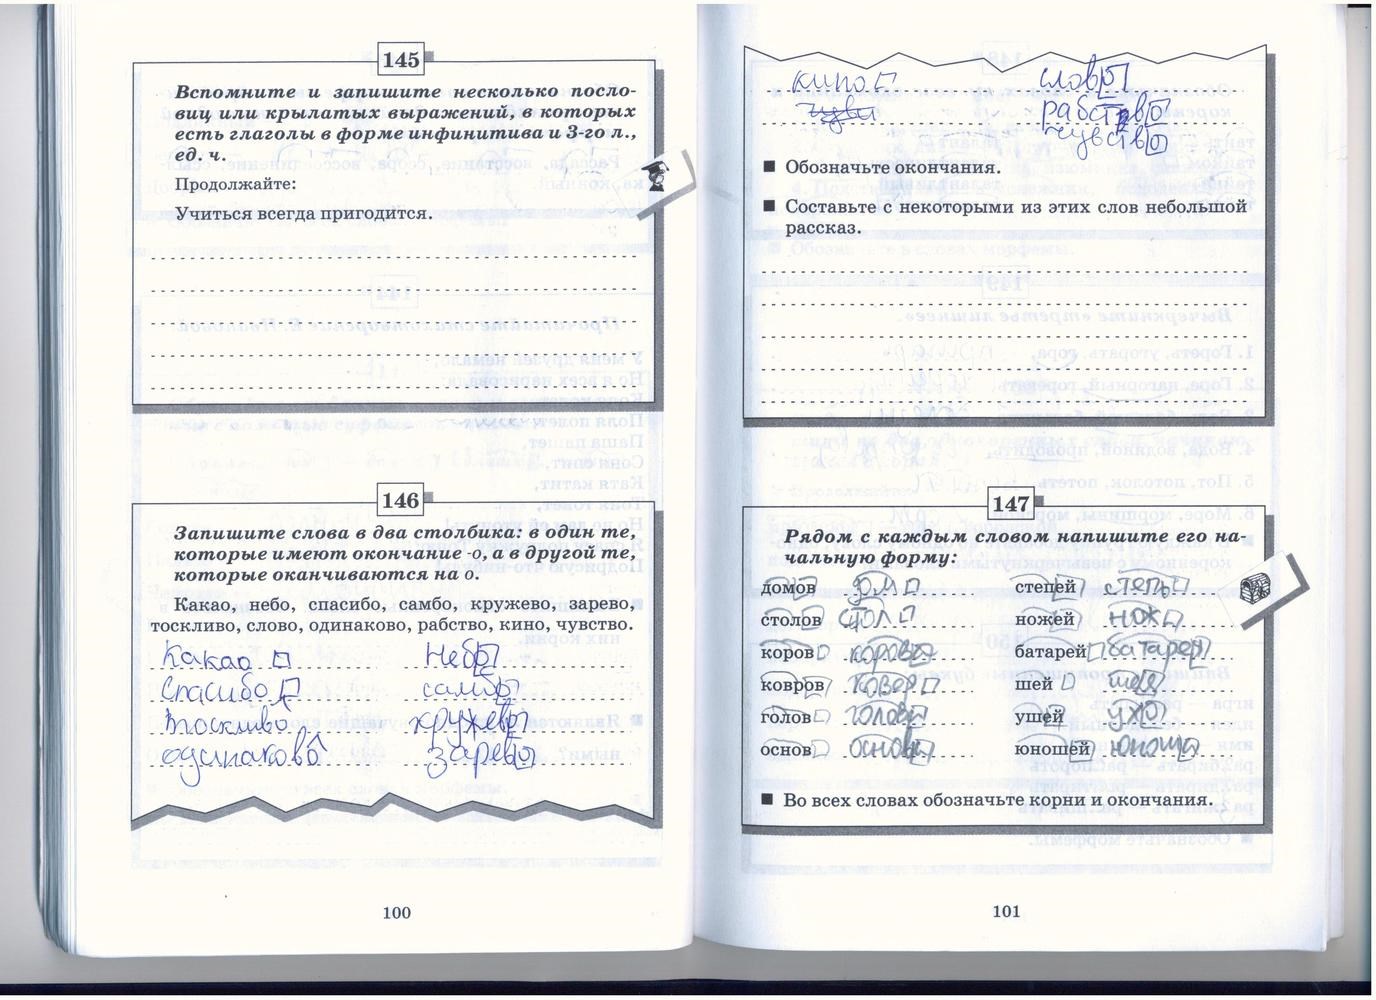 145
Вспомните и запишите несколько посло-
виц или крылатых выражений, в которых
есть глаголы в форме инфинитива и 3-го л.,
ед. ч.
Продолжайте:
Учиться всегда пригодится.
146
Запишите слова в два столбика: в один те,
которые имеют окончание -о, а в другой те,
которые оканчиваются на о.
Какао, небо, спасибо, самбо, кружево, зарево,
тоскливо, слово, одинаково, рабство, кино, чувство.
Какао Небо
Спасибо самбо
Тоскливо кружево
одинаково зарево
100
кино слово
чувст рабство
чувство
Обозначьте окончания.
Составьте с некоторыми из этих слов небольшой
рассказ.
147
Рядом с каждым словом напишите его на-
чальную форму:
домов дом степей степь
столов стол ножей нож
коров корова батарей батарея
ковров ковёр шей шея
голов голова ушей ухо
основ основа юношей юноша
Во всех словах обозначьте корни и окончания.
101